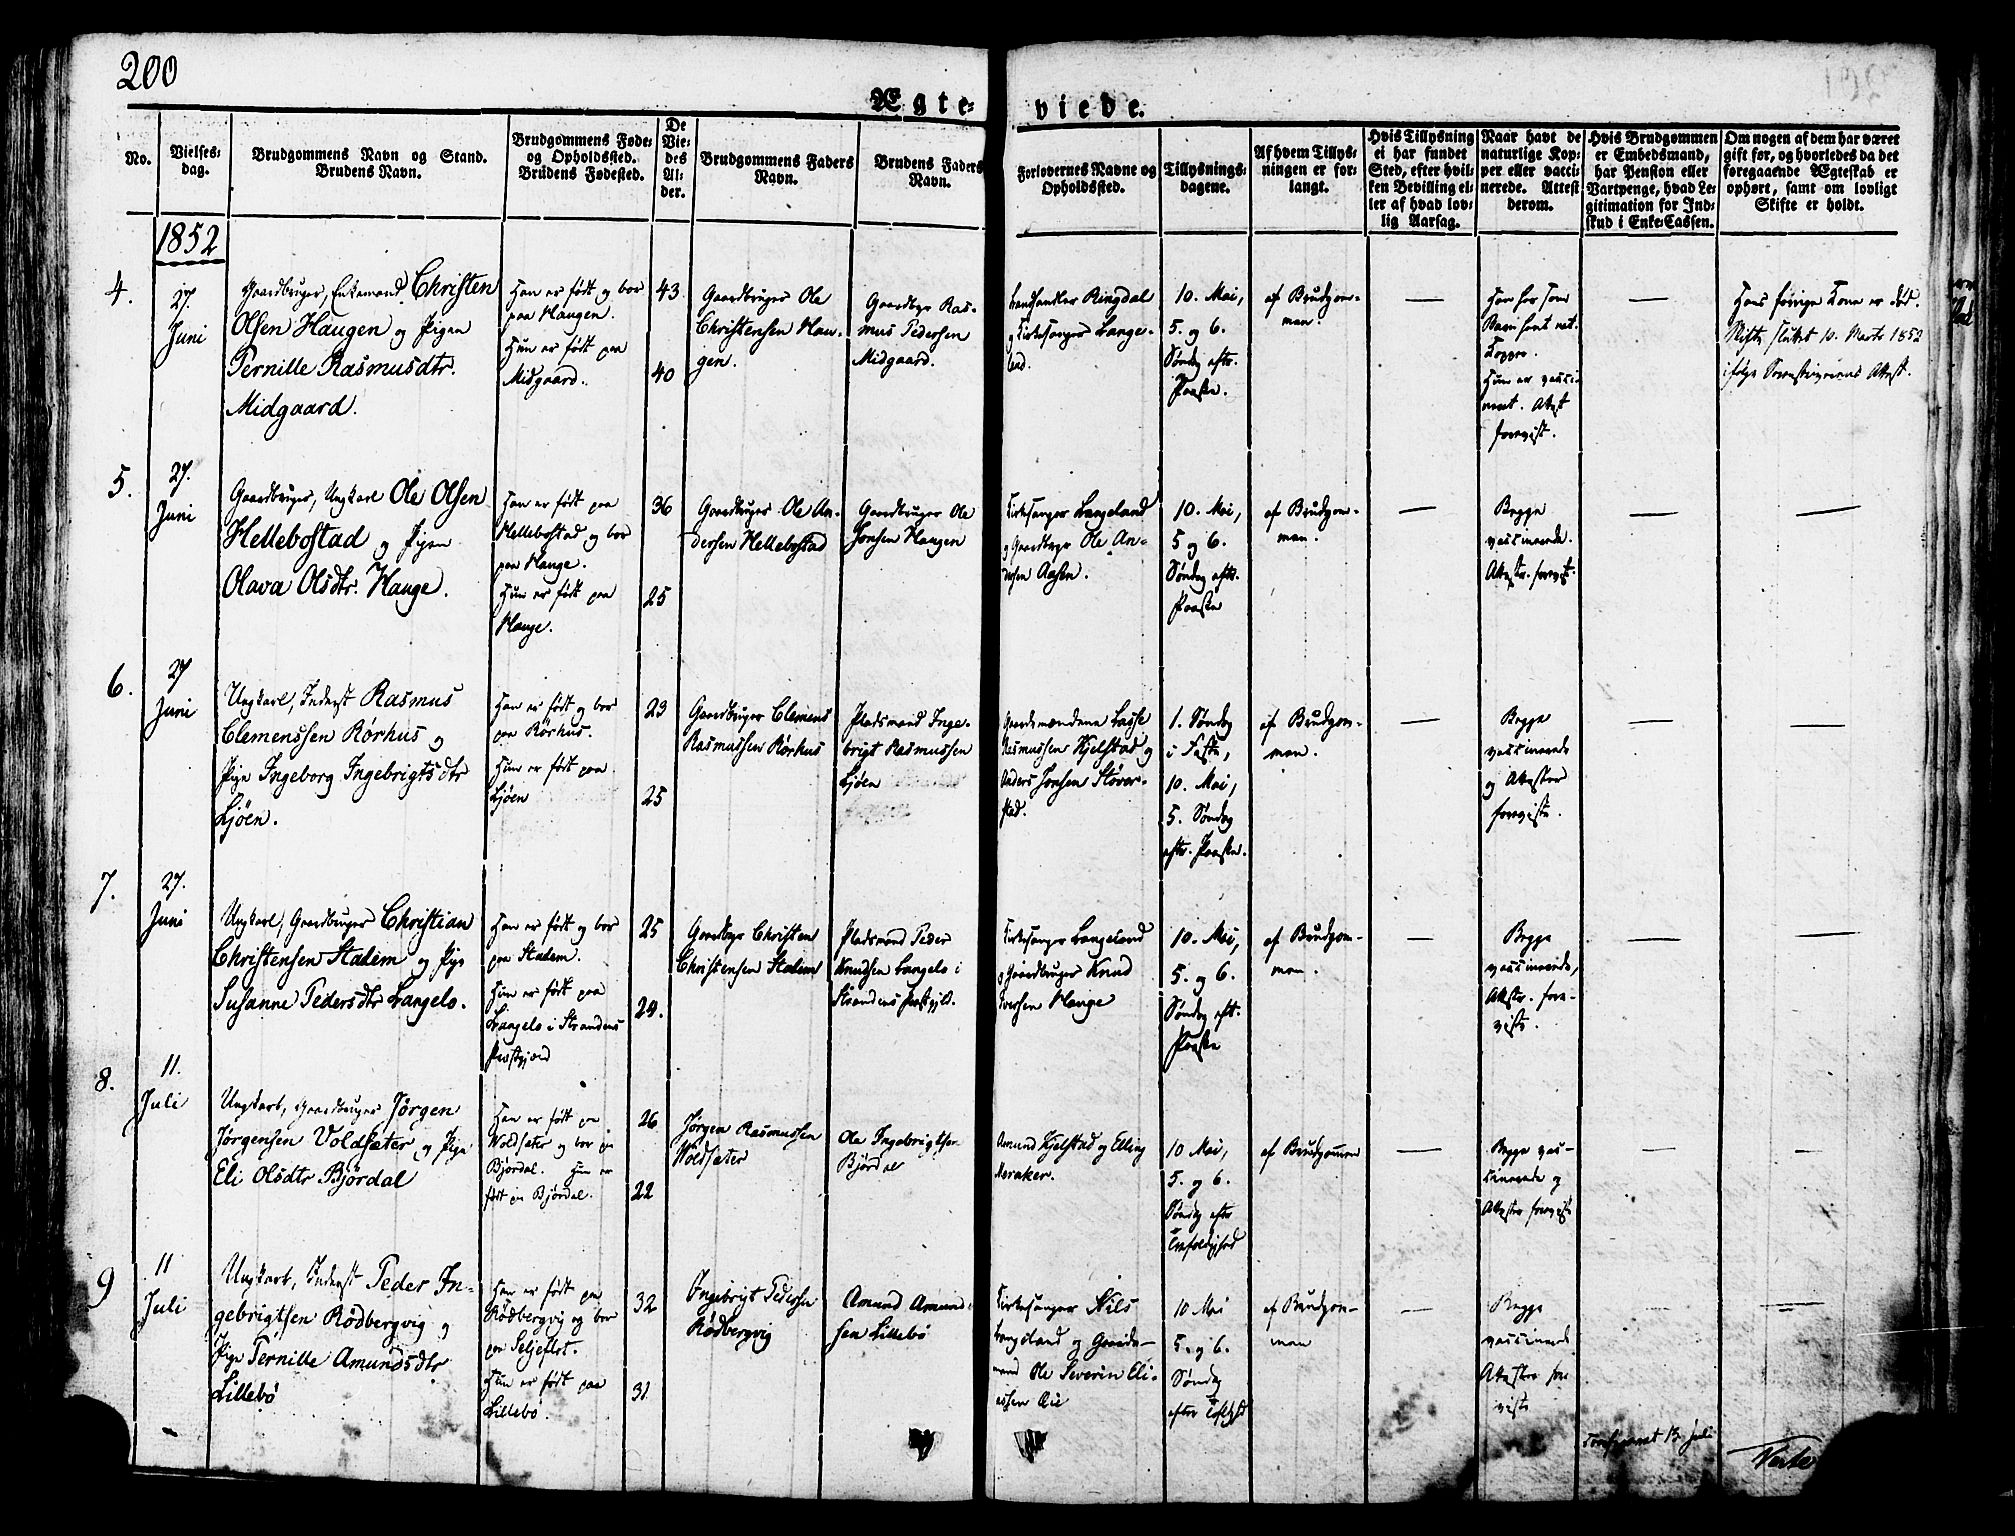 200
Ægte-
viede.
No.
Vielses-
dag.
Brudgommens Navn og Stand.
Brudens Navn.
Brudgommens Føde-
og Opholdssted.
Brudens Fødested.
De
Vie-
des
Al-
der.
Brudgommens Faders
Navn.
Brudens Faders
Navn.
Forlovernes Navne og
Opholdssted.
Tillysnings-
dagene.
Af hvem Tillys-
ningen er for-
langt.
Hvis Tillysning
ei har fundet
Sted, efter hvil-
ken Bevilling el-
ler af hvad lov-
lig Aarsag.
Naar havt de
naturlige Kop-
per eller vacci-
nerede. Attest
derom.
Hvis Brudgommen
er Embedsmand,
har Pension eller
Vartpenge, hvad Le-
gitimation for Ind-
skud i Enke-Cassen.
Om nogen af dem har været
gift før, og hvorledes da det
foregaaende Ægteskab er
ophørt, samt om lovligt
Skifte er holdt.
1852
4.
27.
Juni
Gaardbruger, Enkemand Christen
Olsen Haugen og Pigen
Pernille Rasmusdtr.
Midgaard.
Han er født og bor
paa Haugen.
Hun er født paa
Midgaard.
43
40
Gaardbruger Ole
Christensen Hau-
gen.
Gaardbgr Ras-
mus Pedersen
Midgaard.
Landhandler Ringdal
og Kirkesanger Lange-
land.
10. Mai,
5. og 6.
Søndag eftr.
Paaske.
af Brudgom-
men.
Han har som
Barn havt nat.
Kopper.
Hun er vacci-
neret. Attest
forevist.
Hans forrige Kone er død.
Skifte sluttet 10. Marts 1852
ifølge Sorenskriverens Attest.
5.
27.
Juni
Gaardbruger, Ungkarl Ole Olsen
Hellebostad og Pigen
Olava Olsdtr. Hauge.
Han er født paa
Hellebostad og bor
paa Hauge.
Hun er født paa
Hauge.
36
25
Gaardbruger Ole An-
dersen Hellebostad
Gaardbruger Ole
Jonsen Haugen
Kirkesanger Langeland
og Gaardbgr Ole An-
dersen Aasen.
10. Mai,
5 og 6.
Søndag eftr.
Paaske
af Brudgom-
men.
Begge
vaccinerede.
Attestr. forevist.
6.
27
Juni
Ungkarl, Inderst Rasmus
Clemenssen Rørhus og
Pige Ingeborg Ingebrigtsdtr
Ljøen.
Han er født og bor
paa Rørhus.
Hun er født paa
Ljøen
23
25
Gaardbruger Clemens
Rasmussen Rørhus
Pladsmand Inge-
brigt Rasmussen
Ljøen
Gaardmændene Lasse
Rasmussen Hjelstad og
Anders Jonsen Støver-
stad.
1. Søndag
i Faste,
10. Mai,
5. Søndag
eftr. Paaske.
af Brudgom-
men.
Begge
vaccinerede
og Attester
foreviste.
7.
27.
Juni
Ungkarl, Gaardbruger Christian
Christensen Stadem og Pige
Susanne Pedersdtr Langelo.
Han er født og bor
paa Stadem.
Hun er født paa
Langelo i Strandens
Præstgjeld
25
24.
Gaardbgr Christen
Christensen Stadem
Pladsmand Peder
Knudsen Langelo i
Strandens Præstgjld.
Kirkesanger Langeland
og Gaardbruger Knud
Iversen Hauge
10. Mai,
5. og 6.
Søndag eft.
Paaske
af Brudgom-
men.
Begge
vaccinerede,
Attestr. fore-
viste.
8.
11.
Juli
Ungkarl, Gaardbruger Jørgen
Jørgensen Voldsæter og Pige
Eli Olsdtr Bjørdal
Han er født paa
Voldsæter og bor paa
Bjørdal. Hun er
født paa Bjørdal.
26
22
Jørgen Rasmussen
Voldsæter
Ole Ingebrigtsen
Bjørdal
Amund Hjelstad og Elling
Meraker.
10 Mai,
5. og 6.
Søndag eftr
Trefoldighed
af Brudgommen
Begge vac-
cinerede og
Attester forevist
9
11
Juli
Ungkarl, Inderst Peder In-
gebrigtsen Rødbergvig og
Pige Pernille Amundsdtr
Lillebø
Han er født paa
Rødbergvig og bor
paa Seljeflot.
Hun er født paa
Lillebø.
32
31
Ingebrigt Pedersen
Rødbergvig
Amund Amund-
sen Lillebø
Kirkesanger Nils
Langeland og Gaard-
mand Ole Severin Eli-
10 Mai
5. og 6.
Søndag
efter
af Brudgom-
men
Begge
vaccinerede
Attester fore
viste
13 Juli
Verte